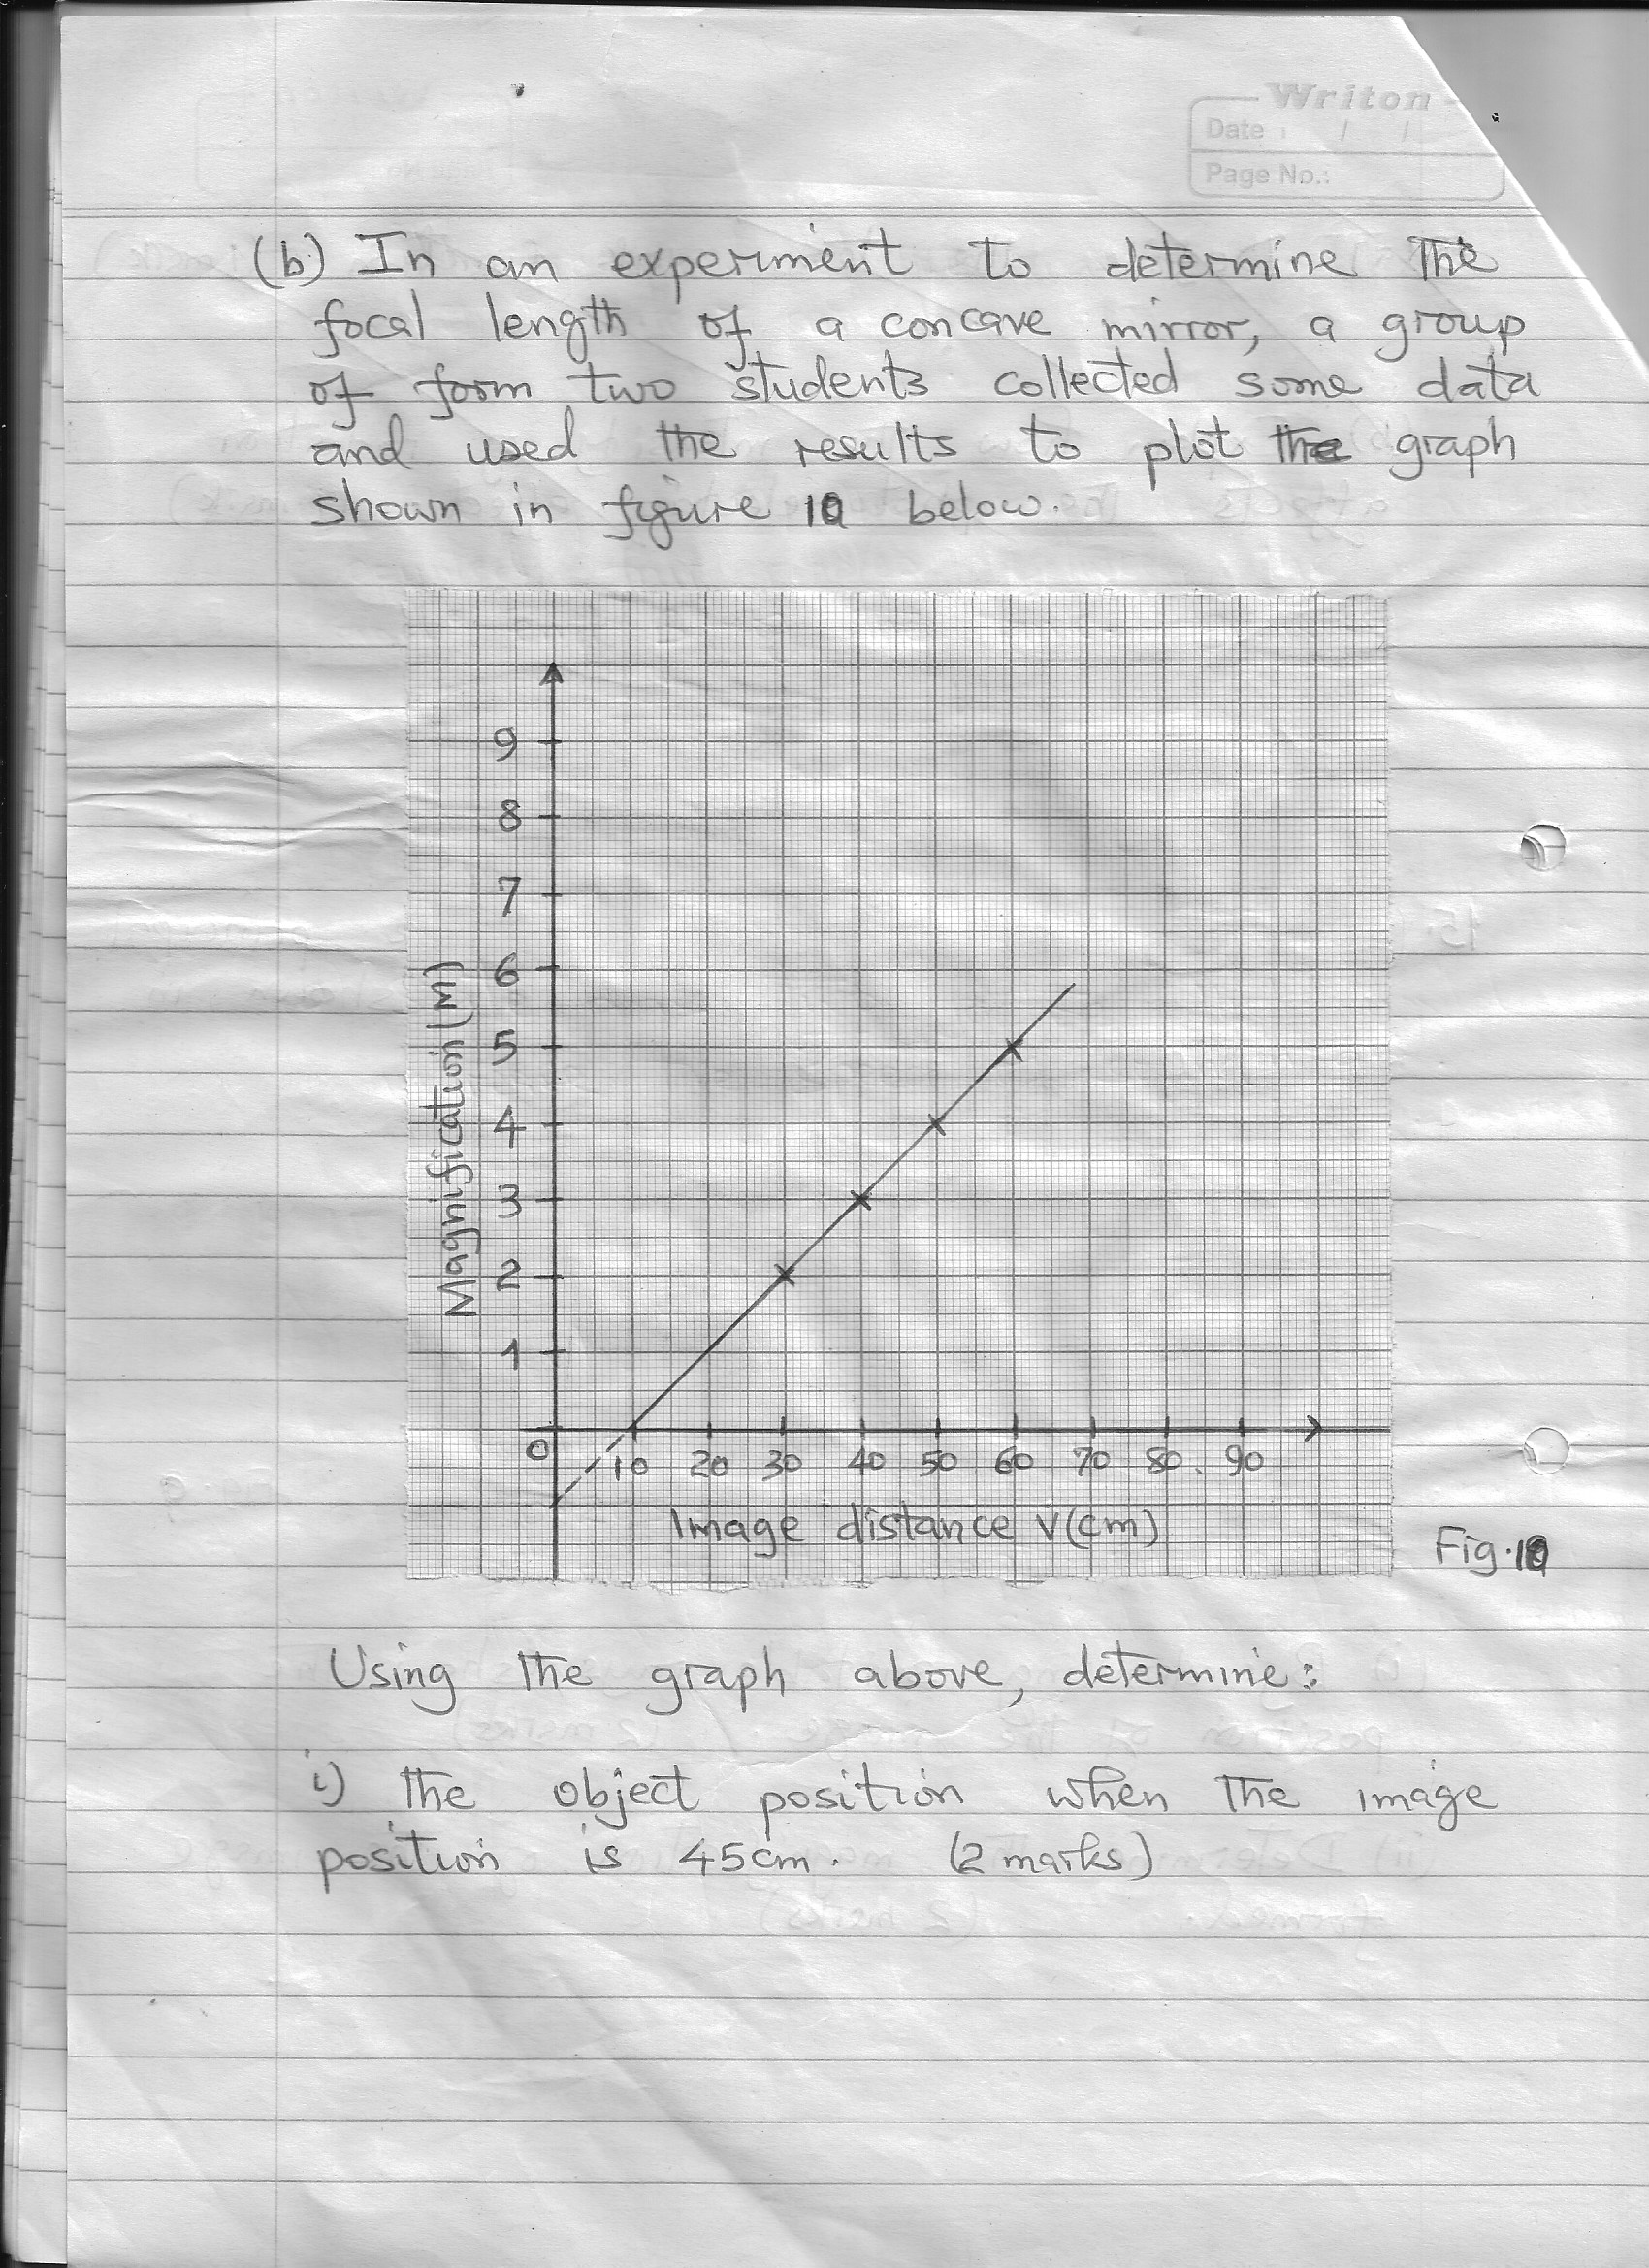 Writon
Date : / /
Page No.:
(b) In an experiment to determine the
focal length of a concave mirror, a group
of form two students collected some data
and used the results to plot the graph
shown in figure 10 below.
9
8
7
6
5
4
3
2
1
Magnification (M)
0 10 20 30 40 50 60 70 80 90
Image distance V(cm)
Fig.10
Using the graph above, determine:
i) the object position when the image
position is 45cm. (2 marks)